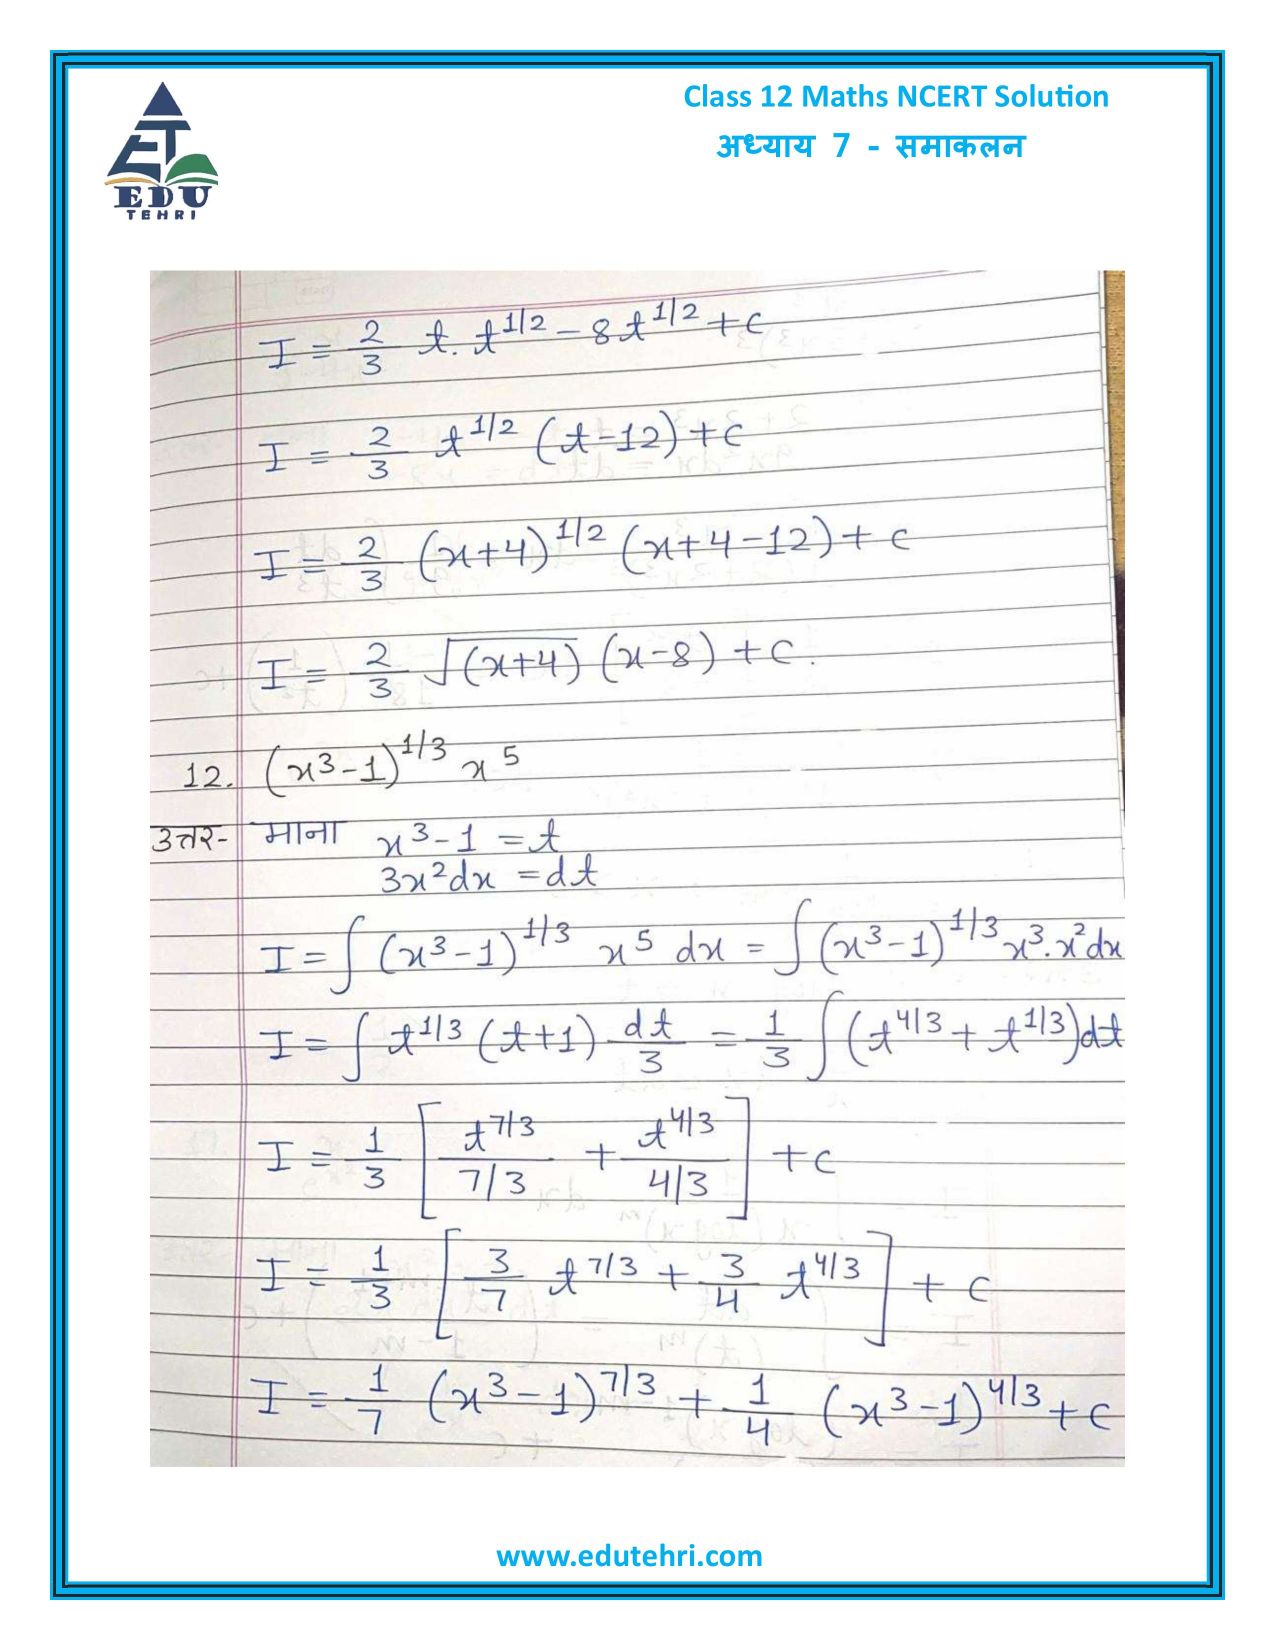 Class 12 Maths NCERT Solution
अध्याय 7 - समाकलन
EDU
TEHRI
I = 2/3 t. t^1/2 - 8t^1/2 + c
I = 2/3 t^1/2 (t-12) + c
I = 2/3 (x+4)^1/2 (x+4-12) + c
I = 2/3 √(x+4) (x-8) + c.
12. (x^3-1)^1/3 x^5
उत्तर- माना x^3-1 = t
3x^2dx = dt
I = ∫(x^3-1)^1/3 x^5 dx = ∫(x^3-1)^1/3 x^3.x^2dx
I = ∫t^1/3 (t+1) dt/3 = 1/3 ∫(t^4/3 + t^1/3)dt
I = 1/3 [t^7/3 / 7/3 + t^4/3 / 4/3] + c
I = 1/3 [3/7 t^7/3 + 3/4 t^4/3] + c
I = 1/7 (x^3-1)^7/3 + 1/4 (x^3-1)^4/3 + c
www.edutehri.com